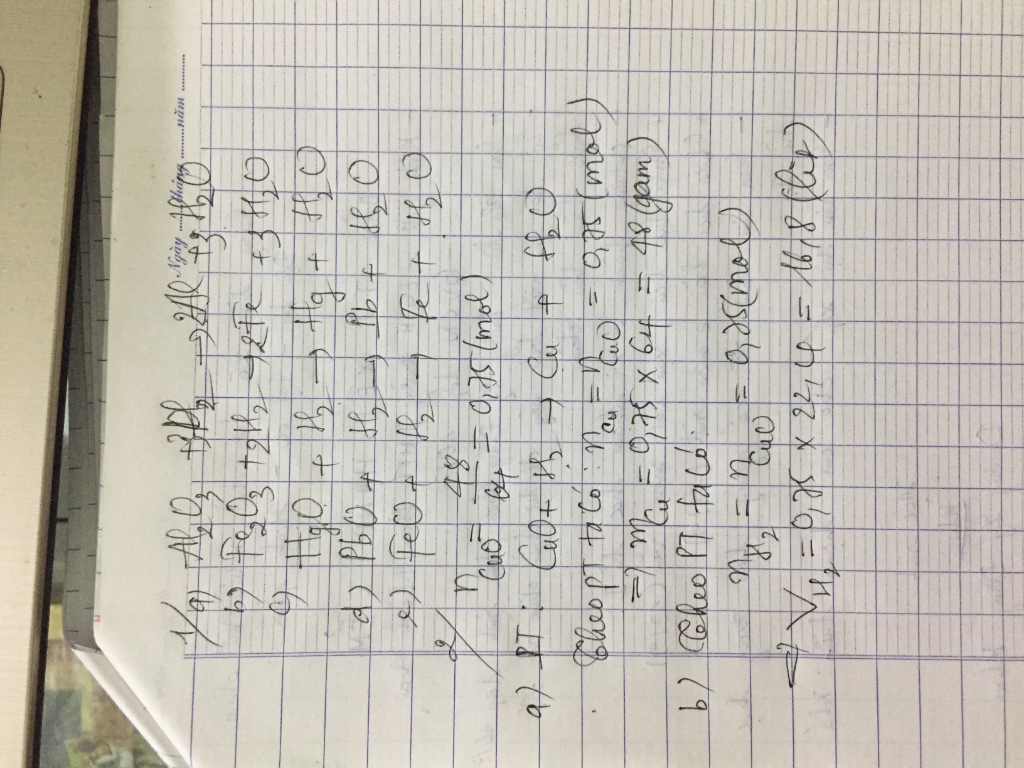 Ngày ........ tháng ........ năm ........
1/
a) Al2O3 + 3H2 → 2Al + 3H2O
b) Fe2O3 + 2H2 → 2Fe + 3H2O
c) HgO + H2 → Hg + H2O
d) PbO + H2 → Pb + H2O
e) FeO + H2 → Fe + H2O
2/ nCuO = 48/64 = 0,75 (mol)
a) PT : CuO + H2 → Cu + H2O
Theo PT ta có : nCu = nCuO = 0,75 (mol)
=> mCu = 0,75 x 64 = 48 (gam)
b) Theo PT ta có :
nH2 = nCuO = 0,75 (mol)
=> VH2 = 0,75 x 22,4 = 16,8 (lít)